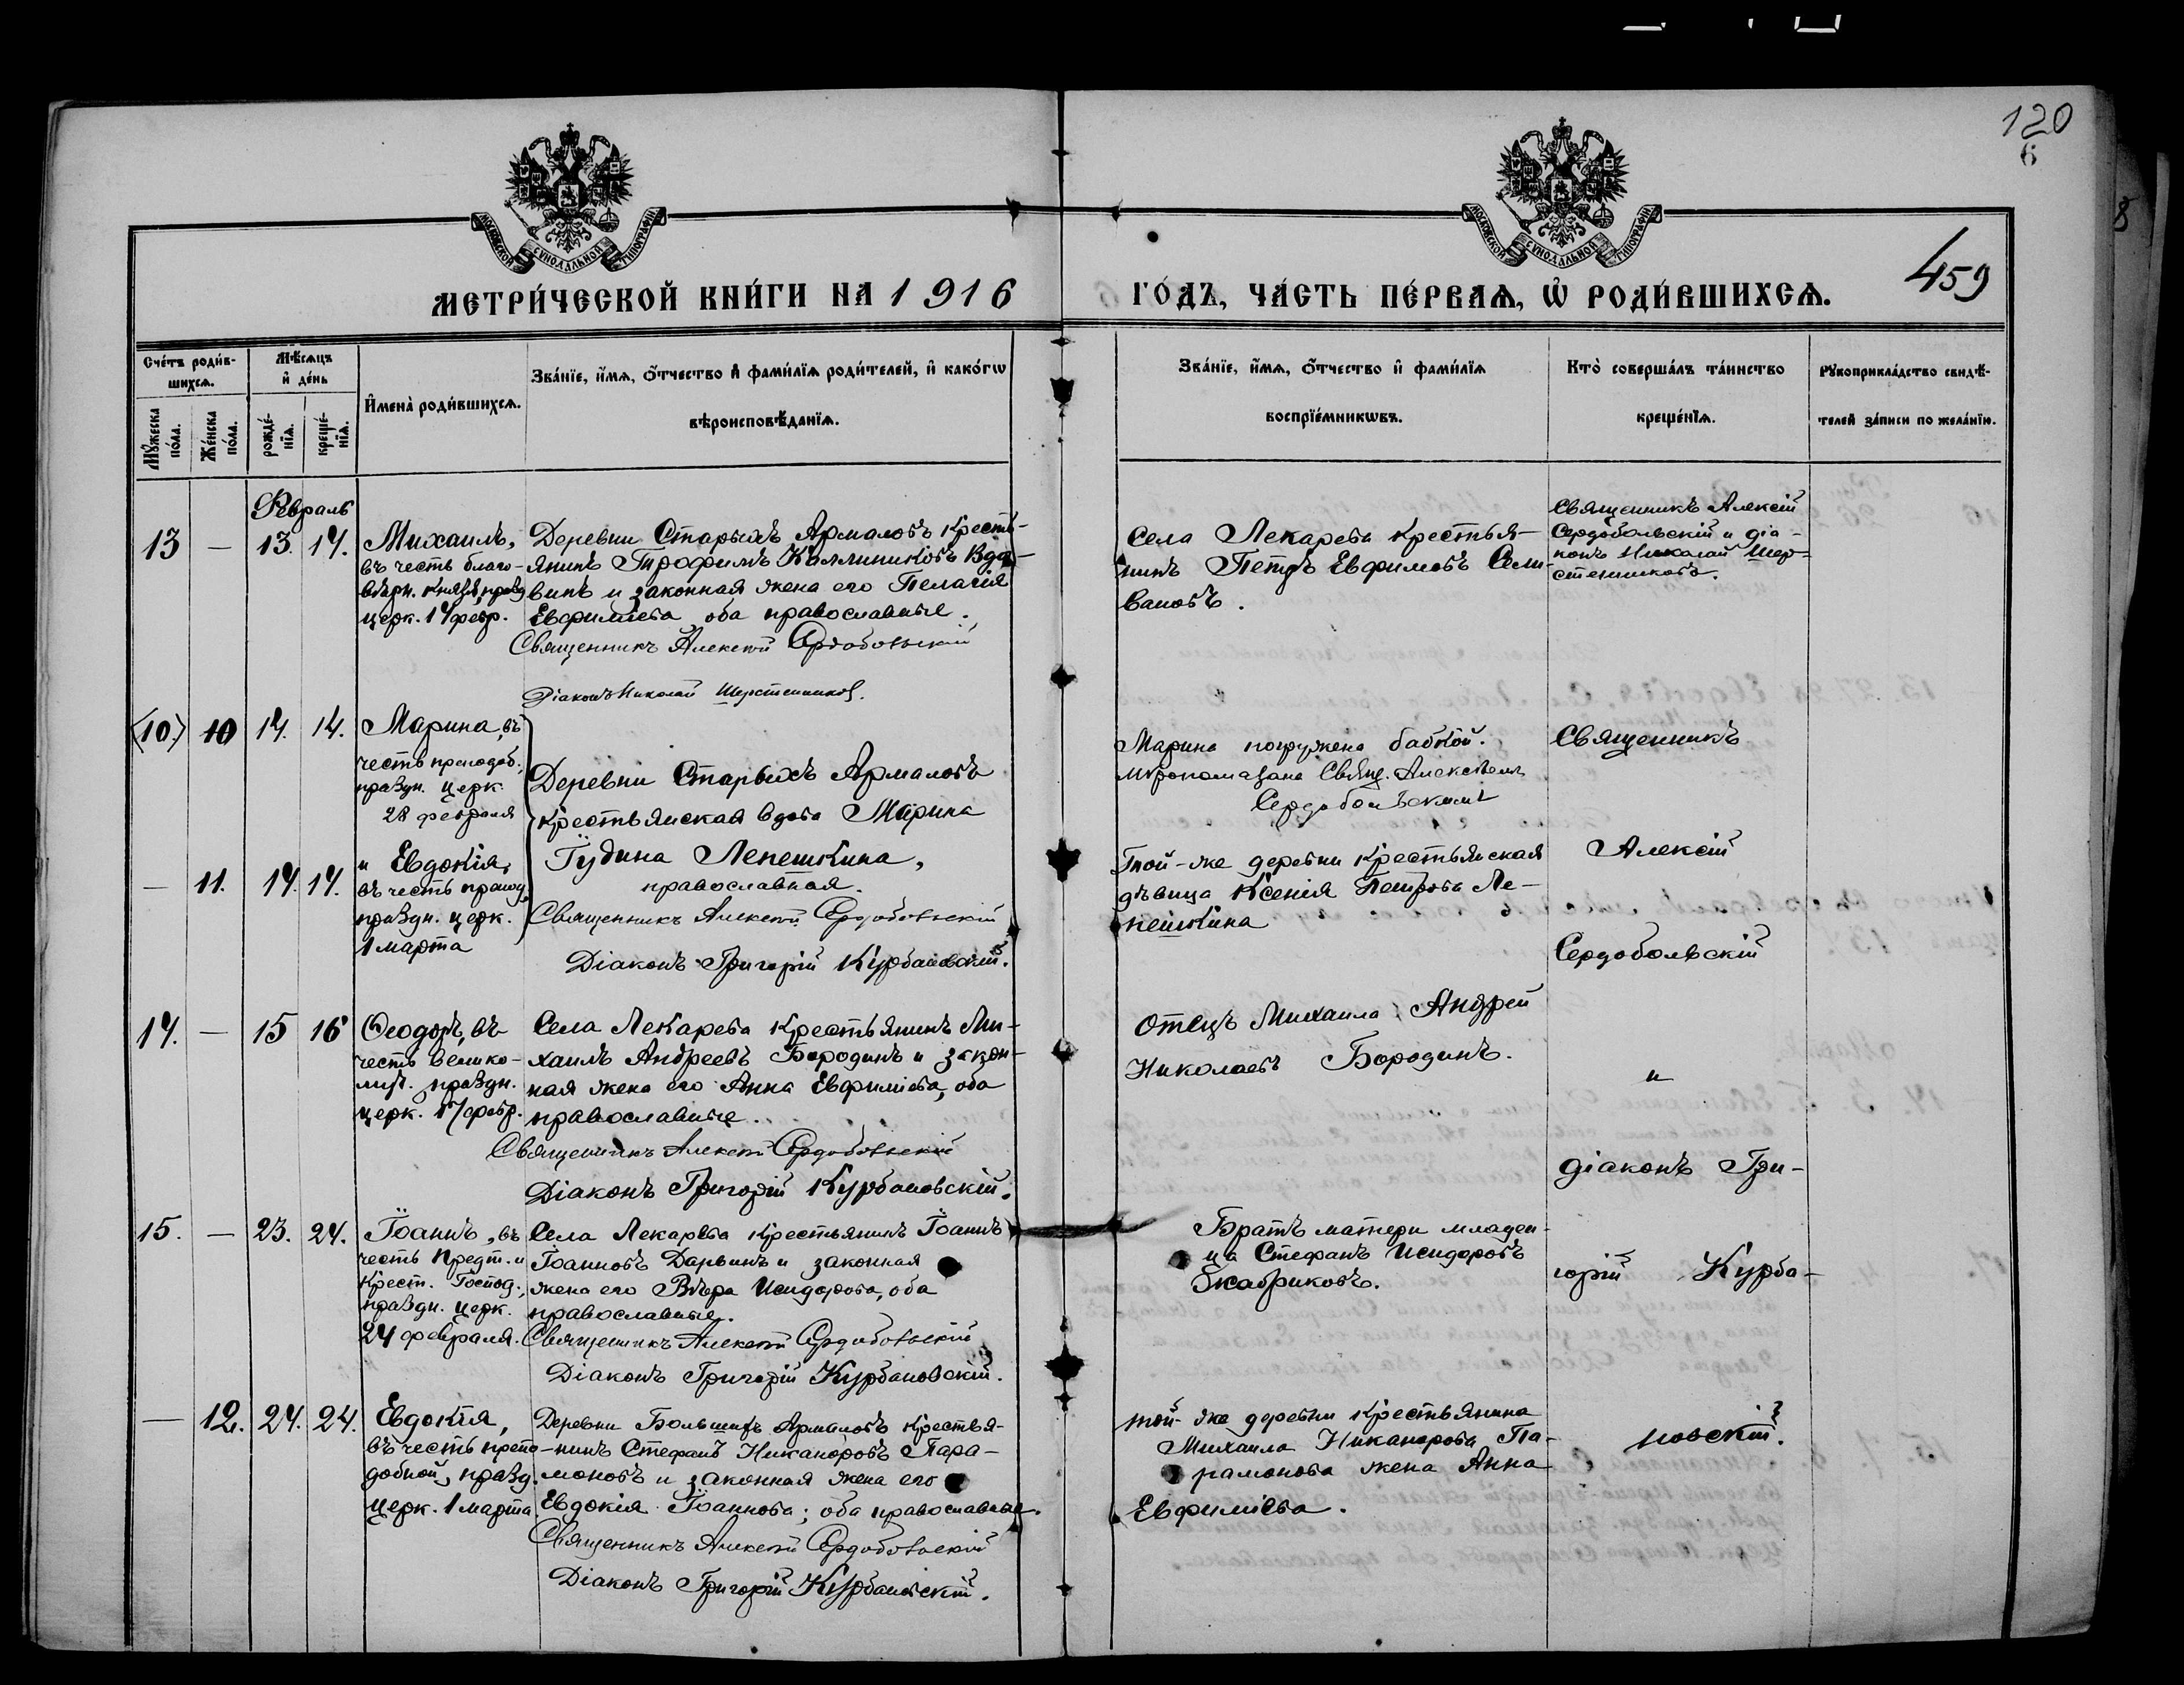 120
6
8
459
МОСКОВСКОЙ СѴНОДАЛЬНОЙ ТИПОГРАФІИ
МОСКОВСКОЙ СѴНОДАЛЬНОЙ ТИПОГРАФІИ
МЕТРИ́ЧЕСКОЙ КНИ́ГИ НА 1916
ГО́ДЪ, ЧА́СТЬ ПЕ́РВАѦ, Ѡ҆ РОДИ́ВШИХСѦ.
Сче́тъ роди́в-
шихсѧ.
Мѣ́сѧцъ
и҆ де́нь
Мꙋ́жеска
по́ла.
Же́нска
по́ла.
рожде́-
нїѧ.
креще́-
нїѧ.
И҆мена̀ роди́вшихсѧ.
Зва́нїе, и҆́мѧ, ѻ҆́тчество и҆ фами́лїѧ роди́телей, и҆ како́гѡ
вѣроисповѣ́данїѧ.
Зва́нїе, и҆́мѧ, ѻ҆́тчество и҆ фами́лїѧ
воспрїе́мникѡвъ.
Кто̀ соверша́лъ та́инство
креще́нїѧ.
Рꙋкоприкла́дство свидѣ́-
телей за́писи по жела́нїю.
Февраль
13 — 13. 14.
Михаилъ,
въ честь благо-
вѣрн. князя, празд.
церк. 14 февр.
Деревни Старыхъ Армаловъ кресть-
янинъ Трофимъ Каллиниковъ Вдо-
винъ и законная жена его Пелагія
Евфиміева оба православные.
Священникъ Алексій Сердобольскій
Діаконъ Николай Шерстенников.
Села Лекарева крестья-
нинъ Петръ Евфимовъ Сели-
вановъ.
Священникъ Алексій
Сердобольскій и діа-
конъ Николай Шер-
стенниковъ.
(10.) 10 14. 14.
Марина, въ
честь преподоб.,
праздн. церк.
28 февраля
— 11. 14. 14.
и Евдокія,
въ честь препод.
праздн. церк.
1 марта
Деревни Старыхъ Армаловъ
крестьянская вдова Марина
Іудина Лепешкина,
православная.
Священникъ Алексій Сердобольскій
Діаконъ Григорій Курбановскій.
Марина погружена бабкой.
мѵропомазана Свящ. Алексѣемъ
Сердобольскимъ
Той-же деревни крестьянская
дѣвица Ксенія Петрова Ле-
пешкина
Священникъ
Алексій
Сердобольскій
14. — 15 16
Ѳеодоръ, въ
честь велико-
муч. праздн.
церк. 17 февр.
Села Лекарева крестьянинъ Ми-
хаилъ Андреевъ Бородинъ и закон-
ная жена его Анна Евфиміева, оба
православные.
Священникъ Алексій Сердобольскій
Діаконъ Григорій Курбановскій.
Отецъ Михаила Андрей
Николаевъ Бородинъ.
и
діаконъ Гри-
15. — 23. 24.
Іоаннъ, въ
честь Предт. и
Крест. Господ.,
праздн. церк.
24 февраля.
Села Лекарева крестьянинъ Іоаннъ
Іоанновъ Дарвинъ и законная
жена его Вѣра Исидорова, оба
православные.
Священникъ Алексій Сердобольскій
Діаконъ Григорій Курбановскій.
Братъ матери младен-
ца Стефанъ Исидоровъ
Скабриковъ.
горій Курба-
— 12. 24. 24.
Евдокія,
въ честь препо-
добной, празд.
церк. 1 марта
Деревни Большихъ Армаловъ крестья-
нинъ Стефанъ Никаноровъ Пара-
моновъ и законная жена его
Евдокія Іоаннова; оба православные.
Священникъ Алексій Сердобольскій
Діаконъ Григорій Курбановскій.
той-же деревни крестьянина
Михаила Никанорова Па-
рамонова жена Анна
Евфиміева.
новскій.